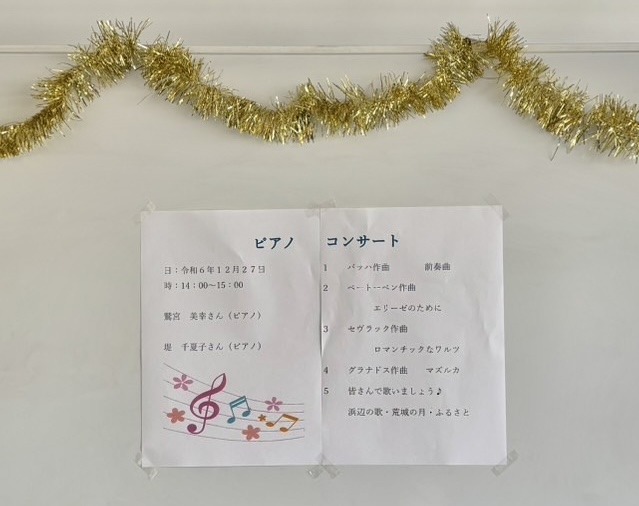 ピアノ コンサート
日：令和６年１２月２７日
時：14：00～15：00
鷲宮　美幸さん（ピアノ）
堤　千夏子さん（ピアノ）
1　バッハ作曲　　前奏曲
2　ベートーベン作曲
エリーゼのために
3　セヴラック作曲
ロマンチックなワルツ
4　グラナドス作曲　マズルカ
5　皆さんで歌いましょう♪
浜辺の歌・荒城の月・ふるさと